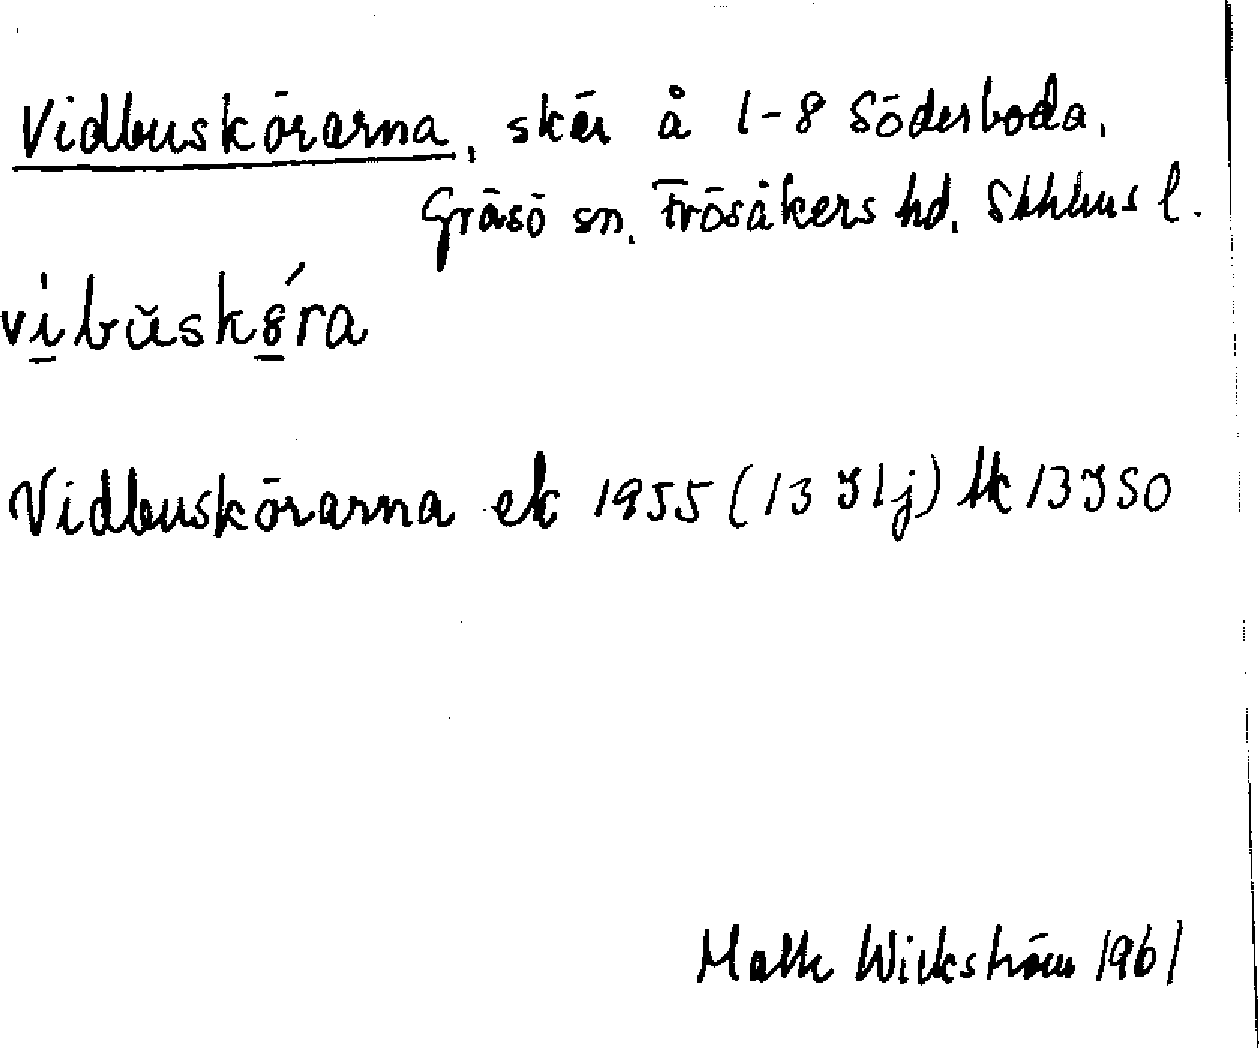 Vidbuskörarna, skär å 1-8 Söderboda,
Gräsö sn. Frösåkers hd. Sthlms l.
vibŭskǿra
Vidbuskörarna ek 1955 (13 I 1j) lk 13 I SO
Wickström 1961